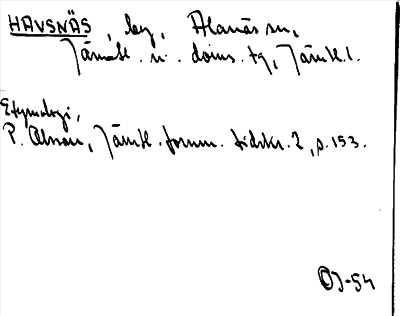 HAVSNÄS, by, Alanäs sn,
Jämtl. n. doms. tg, Jämtl. l.
Etymologi,
P. Olsson, Jämtl. fornm. tidskr. 2, s. 153.
OJ-54